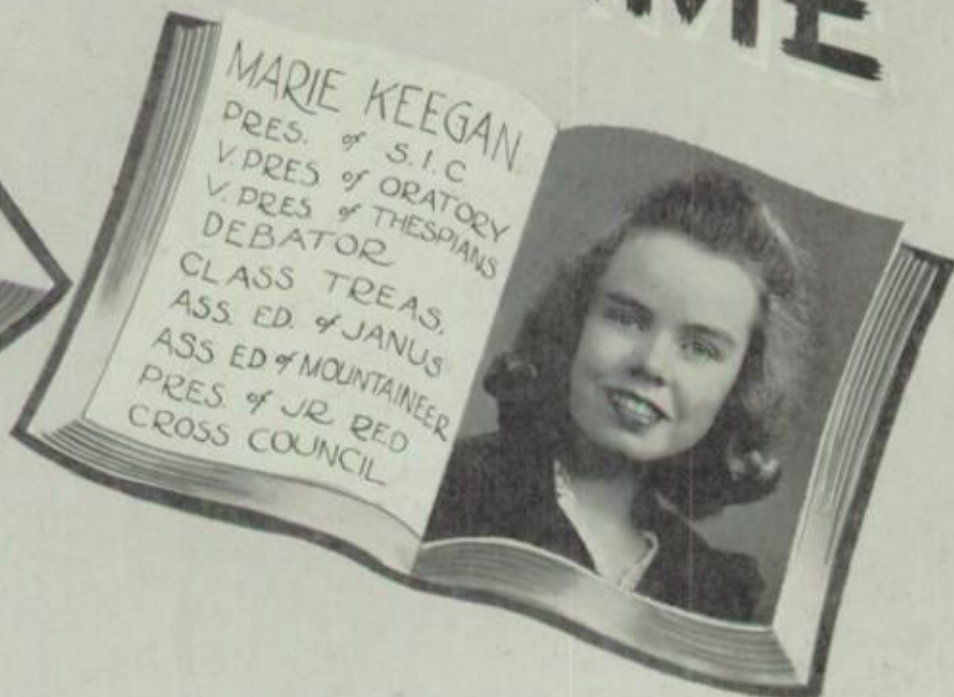 MARIE KEEGAN
PRES. of S.I.C
V. PRES of ORATORY
V. PRES of THESPIANS
DEBATOR
CLASS TREAS.
ASS. ED. of JANUS
ASS ED of MOUNTAINEER
PRES. of JR RED
CROSS COUNCIL